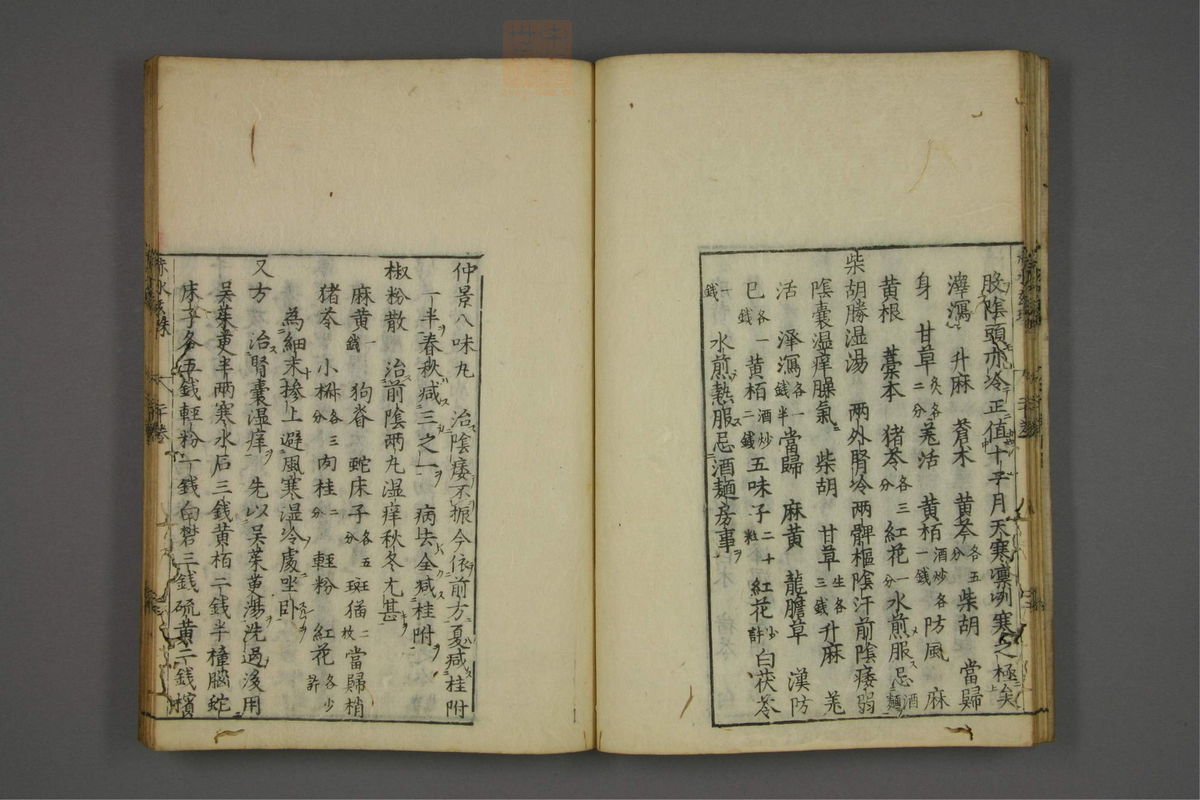 股陰頭亦冷正值十二月天寒凛冽寒之極矣
澤瀉 升麻 蒼术 黄芩各五分柴胡 當歸
身 甘草炙各二分羗活 黄栢酒炒各一錢防風 麻
黄根 藁本 猪苓各三分紅花一分水煎服忌酒麺
柴胡勝湿湯 两外腎冷两髀樞陰汗前陰痿弱
陰囊湿痒臊氣 柴胡 甘草生各三錢升麻 羗
活 澤瀉各一錢半當歸 麻黄 龍膽草 漢防
巳各一錢黄栢酒炒二錢五味子二十粒紅花少許白茯苓
一錢 水煎熱服忌酒麺房事
仲景八味丸 治陰痿不振今依前方夏减桂附
一半春秋减三之一 病去全减桂附
椒粉散 治前陰两丸湿痒秋冬尤甚
麻黄一錢 狗脊 蛇床子各五分 斑猫二枚當歸梢
猪苓 小椒各三分肉桂二分 輕粉 紅花各少許
為細末掺上避風寒湿冷處坐卧
又方 治腎囊湿痒 先以吴茱萸湯洗過後用
吴茱萸半两寒水石三錢黄栢二錢半樟腦蛇
床子各五錢輕粉一錢白礬三錢硫黄二錢檳